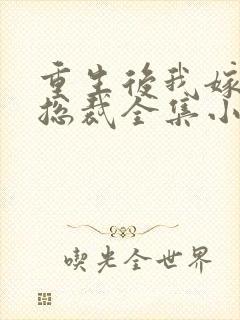 重生後我嫁
總裁全集小
喫光全世界